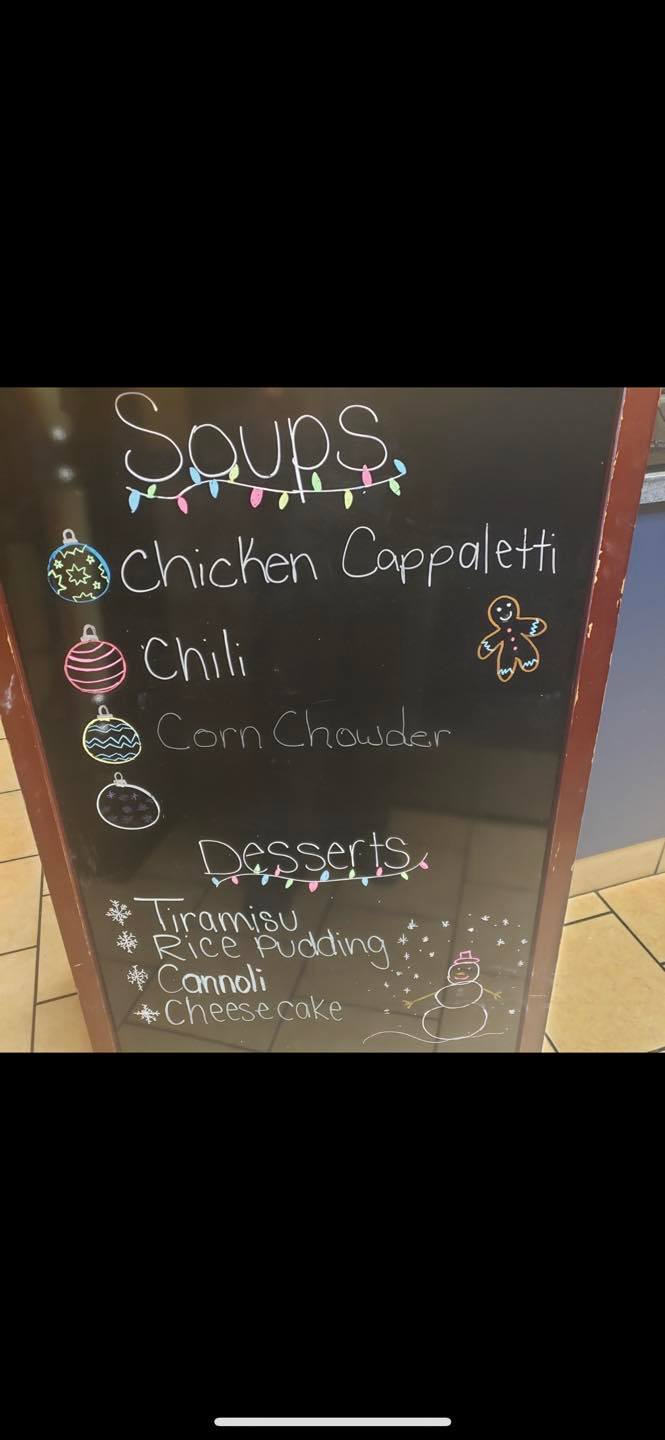 Soups
Chicken Cappaletti
Chili
Corn Chowder
Desserts
Tiramisu
Rice Pudding
Cannoli
Cheesecake